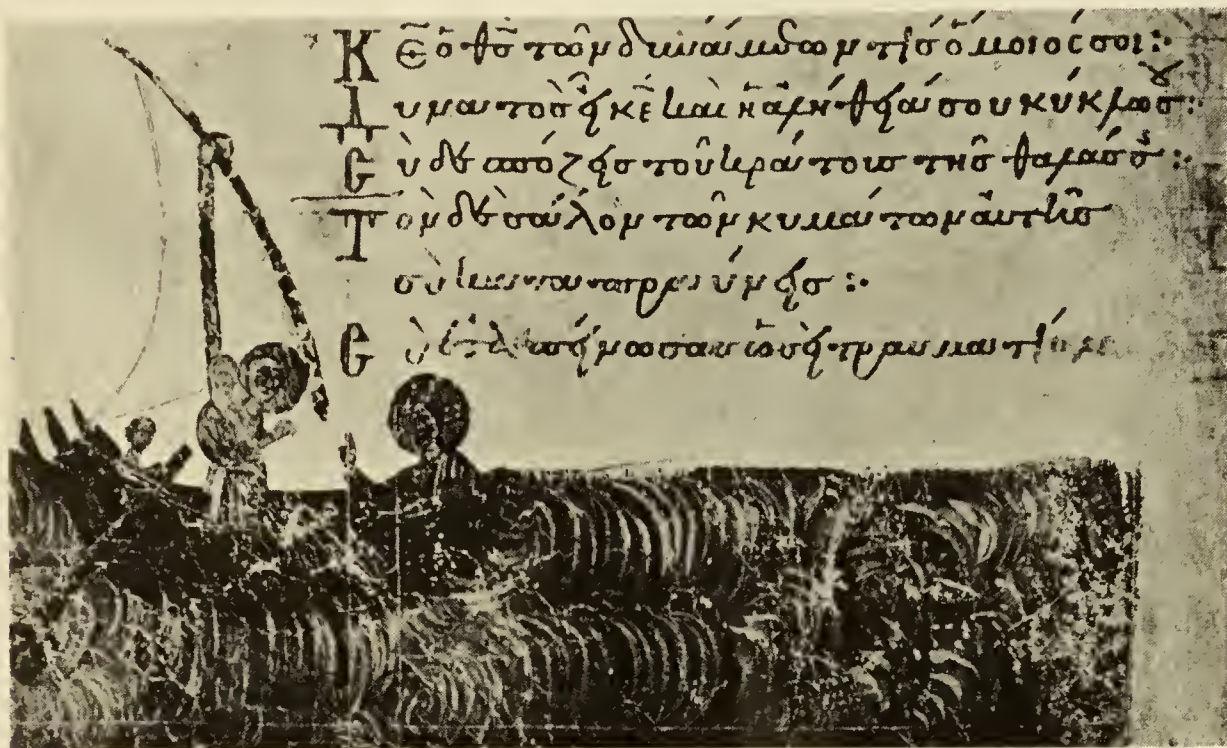 Κε̄ ὁ θς̄ τῶν δυνάμεων τίς ὅμοιός σοι:
Δυνατὸς εἶ κε̄ καὶ ἡ ἀλήθειά σου κύκλω σου:
Σὺ δεσπόζεις τοῦ κράτους τῆς θαλάσσης:
Τὸν δὲ σάλον τῶν κυμάτων αὐτῆς
σὺ καταπραΰνεις:
Σὺ ὡσεὶ